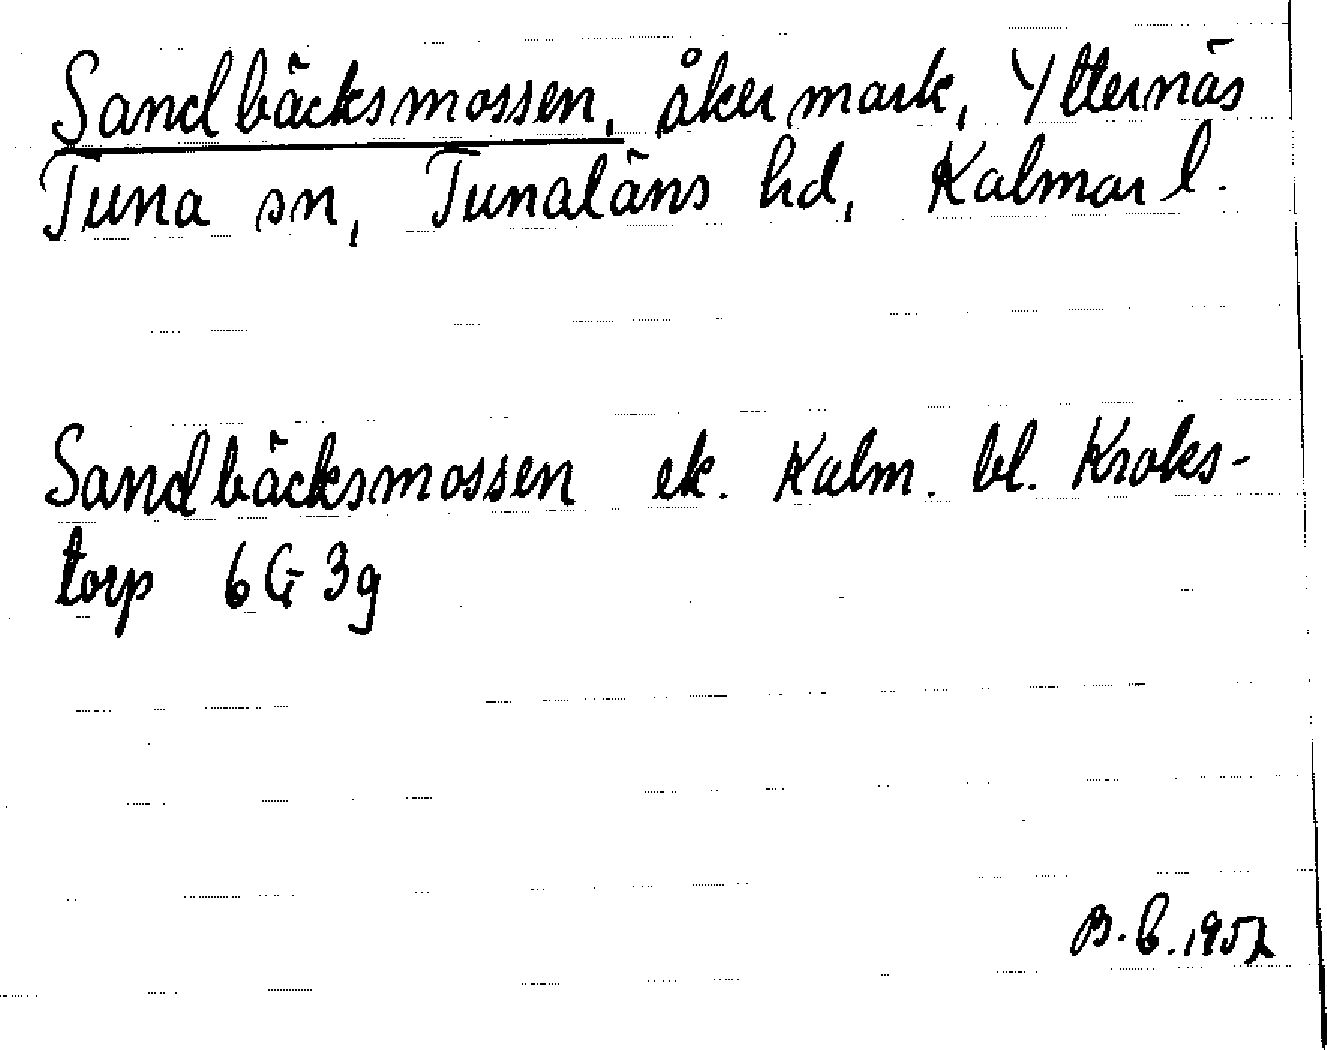 Sandbäcksmossen, åkermark, Ytternäs
Tuna sn, Tunaläns hd, Kalmar l.
Sandbäcksmossen ek. Kalm. bl. Kroks-
torp 6G 3g
B.E.1952